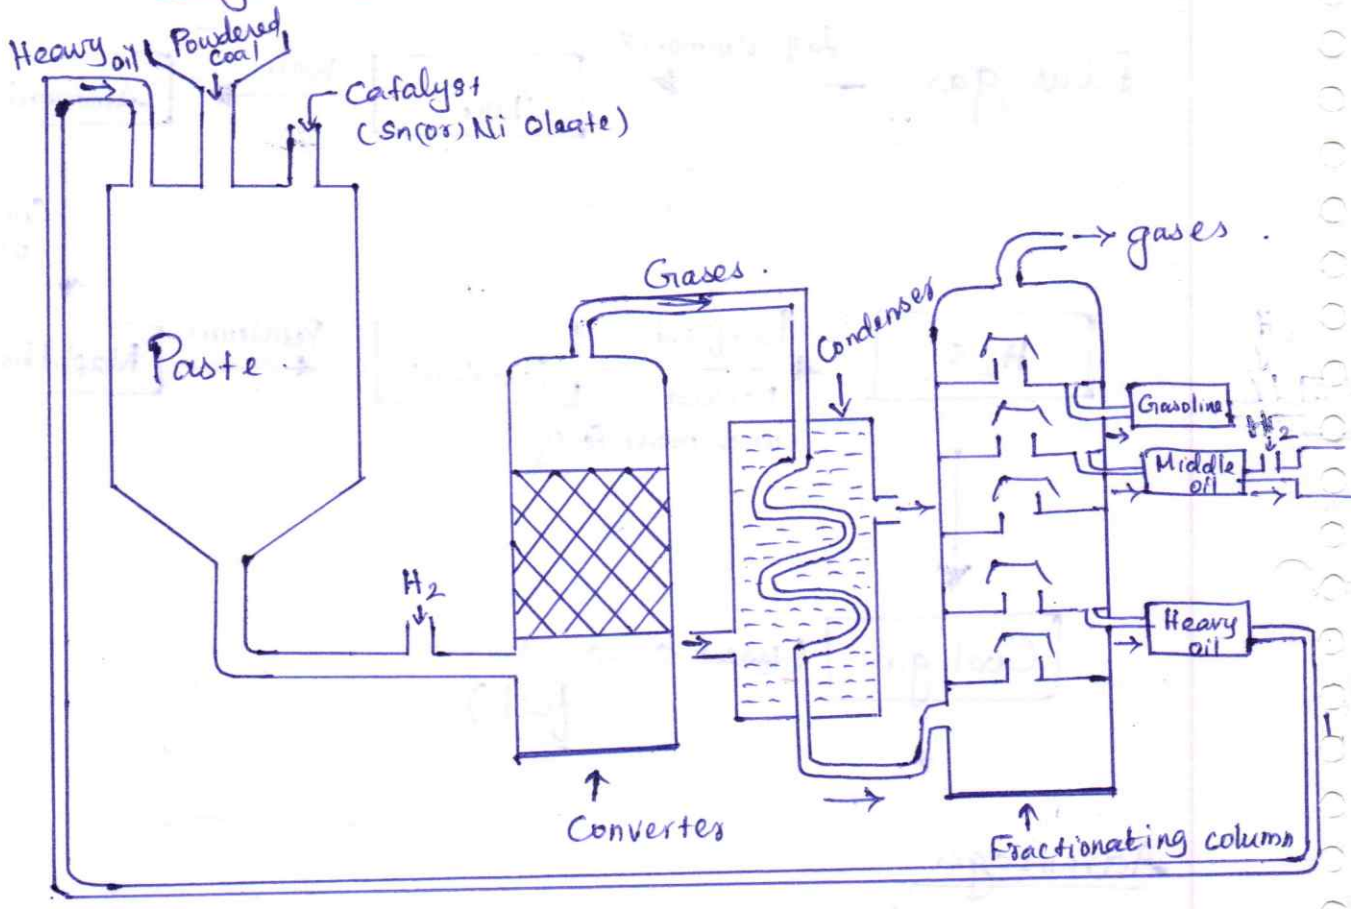 Heavy oil
Powdered
coal
Catalyst
(Sn(or) Ni Oleate)
Paste
H2
Gases.
Converter
Condenser
gases.
Gasoline
H2
Middle
oil
Heavy
oil
Fractionating column